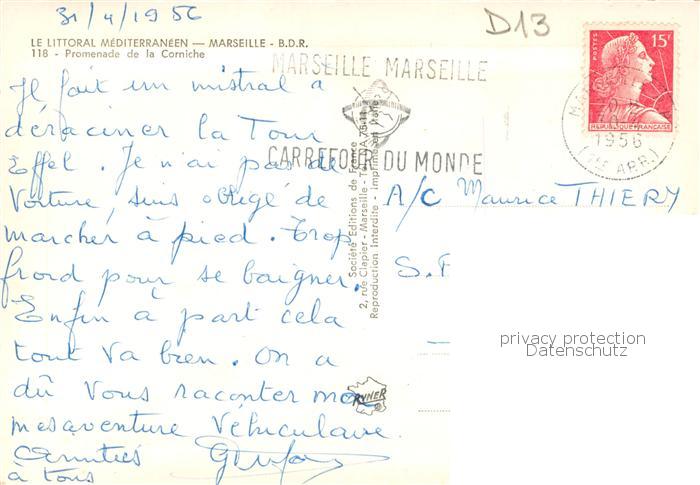 31/4/1956
D13
LE LITTORAL MÉDITERRANÉEN — MARSEILLE - B.D.R.
118 - Promenade de la Corniche
MARSEILLE MARSEILLE
CARREFOUR DU MONDE
POSTES
15F
REPUBLIQUE FRANÇAISE
1956
(1er ARR.)
Il fait un mistral a
déraciner la Tour
Eiffel. Je n'ai pas de
Voiture, suis obligé de
marcher à pied. Trop
froid pour se baigner.
Enfin à part cela
tout va bien. On a
dû vous raconter mon
mesaventure Véhiculaire.
Amitiés
à tous
Société Editions de France
2, rue Clapier - Marseille
Reproduction Interdite - Imprimé en Italie
RYNER
A/C Maurice THIERY
privacy protection
Datenschutz